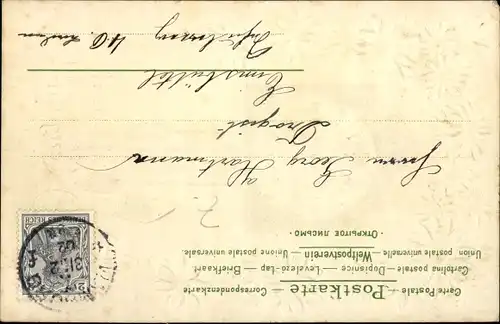 Carte Postale — Postkarte — Correspondenzkarte
Cartolina postale — Dopisnice — Levelező-Lap — Briefkaart
Union postale universelle. Weltpostverein — Unione postale universale.
· ОТКРЫТОЕ ПИСЬМО ·
Herrn Georg Hartmann
Drogist
Eimsbüttel
REICH
31.12
02
F